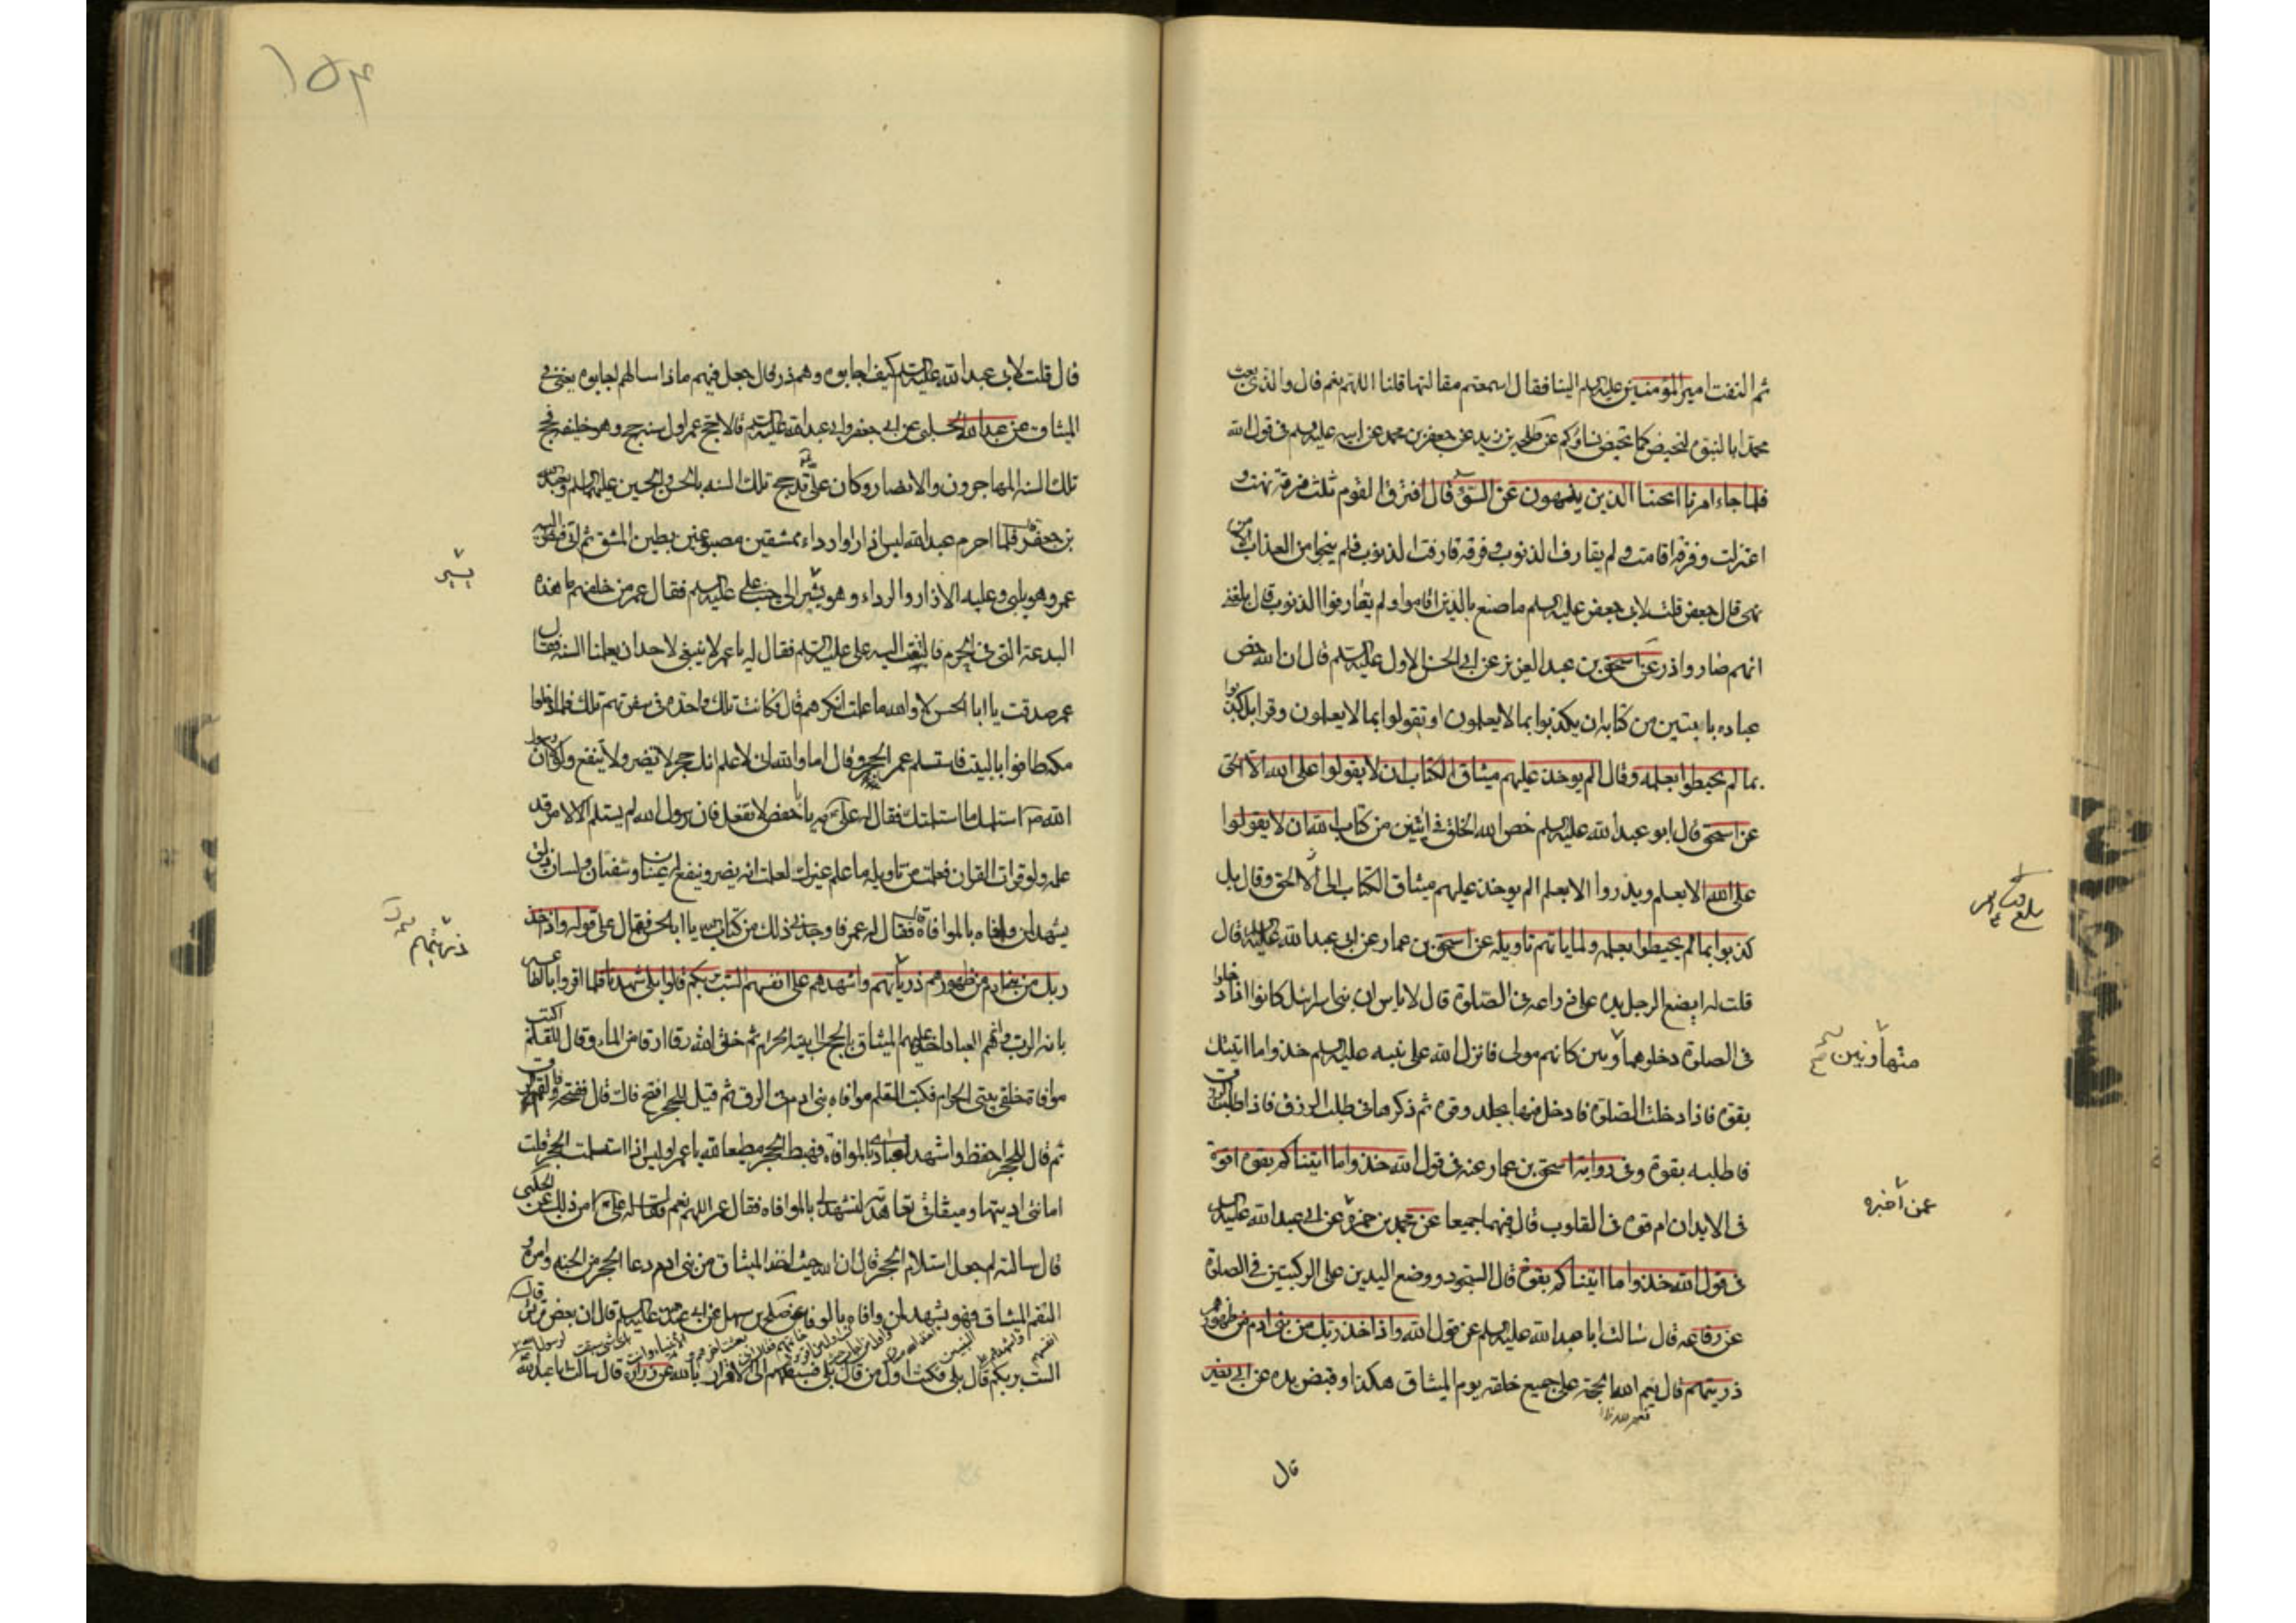 ثم التفت امير المؤمنين عليه السلم الينا فقال اسمعتم مقالتها قلنا اللهم نعم قال والذي بعث
محمدا بالنبوة لتحيض كما تحيض نساؤكم عن طلحة بن زيد عن جعفر بن محمد عن ابيه عليه السلم في قول الله
فلما جاء امرنا انجينا الذين ينهون عن السوء قال افترق القوم ثلث فرقة نهت و
اعتزلت وفرقة اقامت ولم يقارف الذنوب وفرقة قارفت الذنوب فلم ينج من العذاب الا من
نهى قال جعفر قلت لابي جعفر عليه السلم ما صنع بالذين اقاموا ولم يقارفوا الذنوب قال بلغني
انهم صاروا ذر عن اسحق بن عبد العزيز عن ابي الحسن الاول عليه السلم قال ان الله خص
عباده بايتين من كتابه ان يكذبوا بما لا يعلمون او تقولوا بما لا يعلمون وقرا بل كذبوا
بما لم يحيطوا بعلمه وقال الم يوخذ عليهم ميثاق الكتاب ان لا يقولوا على الله الا الحق
عن اسحق قال ابو عبد الله عليه السلم خص الله الخلق في ايتين من كتاب الله ان لا يقولوا
على الله الا بعلم ويذروا الا بعلم الم يوخذ عليهم ميثاق الكتاب الى الا الحق وقال بل
كذبوا بما لم يحيطوا بعلمه ولما ياتهم تاويله عن اسحق بن عمار عن ابي عبد الله عليه السلم قال
قلت له ايضع الرجل يده على ذراعه في الصلوة قال لا باس ان بني اسرائيل كانوا اذا دخلوا
في الصلوة دخلوها متماوتين كانهم موتى فانزل الله على نبيه عليه السلم خذوا ما اتيتك
بقوة فاذا دخلت الصلوة فادخل منها بجلد وقوة ثم ذكرها في طلب الرزق فاذا طلبت الرزق
فاطلبه بقوة وفي رواية اسحق بن عمار عنه في قول الله خذوا ما اتيناكم بقوة اقوة
في الابدان ام قوة في القلوب قال فيهما جميعا عن محمد بن حمزة عن ابي عبد الله عليه السلم
في قول الله خذوا ما اتيناكم بقوة قال السجود ووضع اليدين على الركبتين في الصلوة
عن رفاعة قال سالت ابا عبد الله عليه السلم عن قول الله واذ اخذ ربك من بني ادم من ظهورهم
ذريتهم قال نعم الله الحجة على جميع خلقه يوم الميثاق هكذا وقبض يده عن ابي بصير
قال
عمن اخبره
١٥٤
قال قلت لابي عبد الله عليه السلم كيف اجابوه وهم ذر قال جعل فيهم ما اذا سالهم اجابوه يعني في
الميثاق عن عبد الله الحلبي عن ابي جعفر وابي عبد الله عليه السلم قالا حج عمر اول سنة حج وهو خليفة فحج
تلك السنة المهاجرون والانصار وكان علي قد حج تلك السنة بالحسن والحسين عليهما السلم وبعبد الله
بن جعفر قال فلما احرم عبد الله لبس ازارا ورداء ممشقين مصبوغين بطين المشق ثم اتى فنظر اليه
عمر وهو يلبي وعليه الازار والرداء وهو يشير الى جنب علي عليه السلم فقال عمر من خلفهم ما هذه
البدعة التي في الحرم فالتفت اليه علي عليه السلم فقال له يا عمر لا ينبغي لاحد ان يعلمنا السنة فقال
عمر صدقت يا ابا الحسن لا والله ما علمت انكم هم قال فكانت تلك واحدة في سفرتهم تلك فلما دخلوا
مكة طافوا بالبيت فاستلم عمر الحجر وقال اما والله اني لاعلم انك حجر لا تضر ولا ينفع ولولا ان رسول
الله ص استلمك ما استلمتك فقال له علي يا ابا حفص لا تفعل فان رسول الله لم يستلم الا لامر قد
علمه ولو قرات القران فعلمت من تاويله ما علم غيرك لعلمت انه يضر وينفع له عينان وشفتان ولسان ذلق
يشهد لمن وافاه بالموافاة قال فقال له عمر فاوجدني ذلك من كتاب الله يا ابا الحسن فقال علي قوله واذ اخذ
ربك من بني ادم من ظهورهم ذرياتهم واشهدهم على انفسهم الست بربكم قالوا بلى شهدنا فلما اقروا بالطاعة
بانه الرب وانهم العباد اخذ عليهم الميثاق بالحج الى بيته الحرام ثم خلق الله رقا ارق من الماء وقال للقلم اكتب
موافاة خلقي ببيتي الحرام فكتب القلم موافاة بني ادم في الرق ثم قيل للحجر افتح فاك قال ففتحه فالقم الرق
ثم قال للحجر احفظ واشهد لعبادي بالموافاة فهبط الحجر مطيعا لله يا عمر اوليس اذا استلمت الحجر قلت
امانتي اديتها وميثاقي تعاهدته لتشهد لي بالموافاة فقال عمر اللهم نعم فقال له علي امن ذلك عن الحلبي
قال سالته لم جعل استلام الحجر قال ان الله حيث اخذ الميثاق من بني ادم دعا الحجر من الجنة وامره
التقم الميثاق فهو يشهد لمن وافاه بالوفا عن صالح بن سهل عن ابي عبد الله عليه السلم قال ان بعض قريش قال
الست بربكم قال بلى فكنت اول من قال بلى فسبقتهم الى الاقرار بالله عن زرارة قال سالت ابا عبد الله